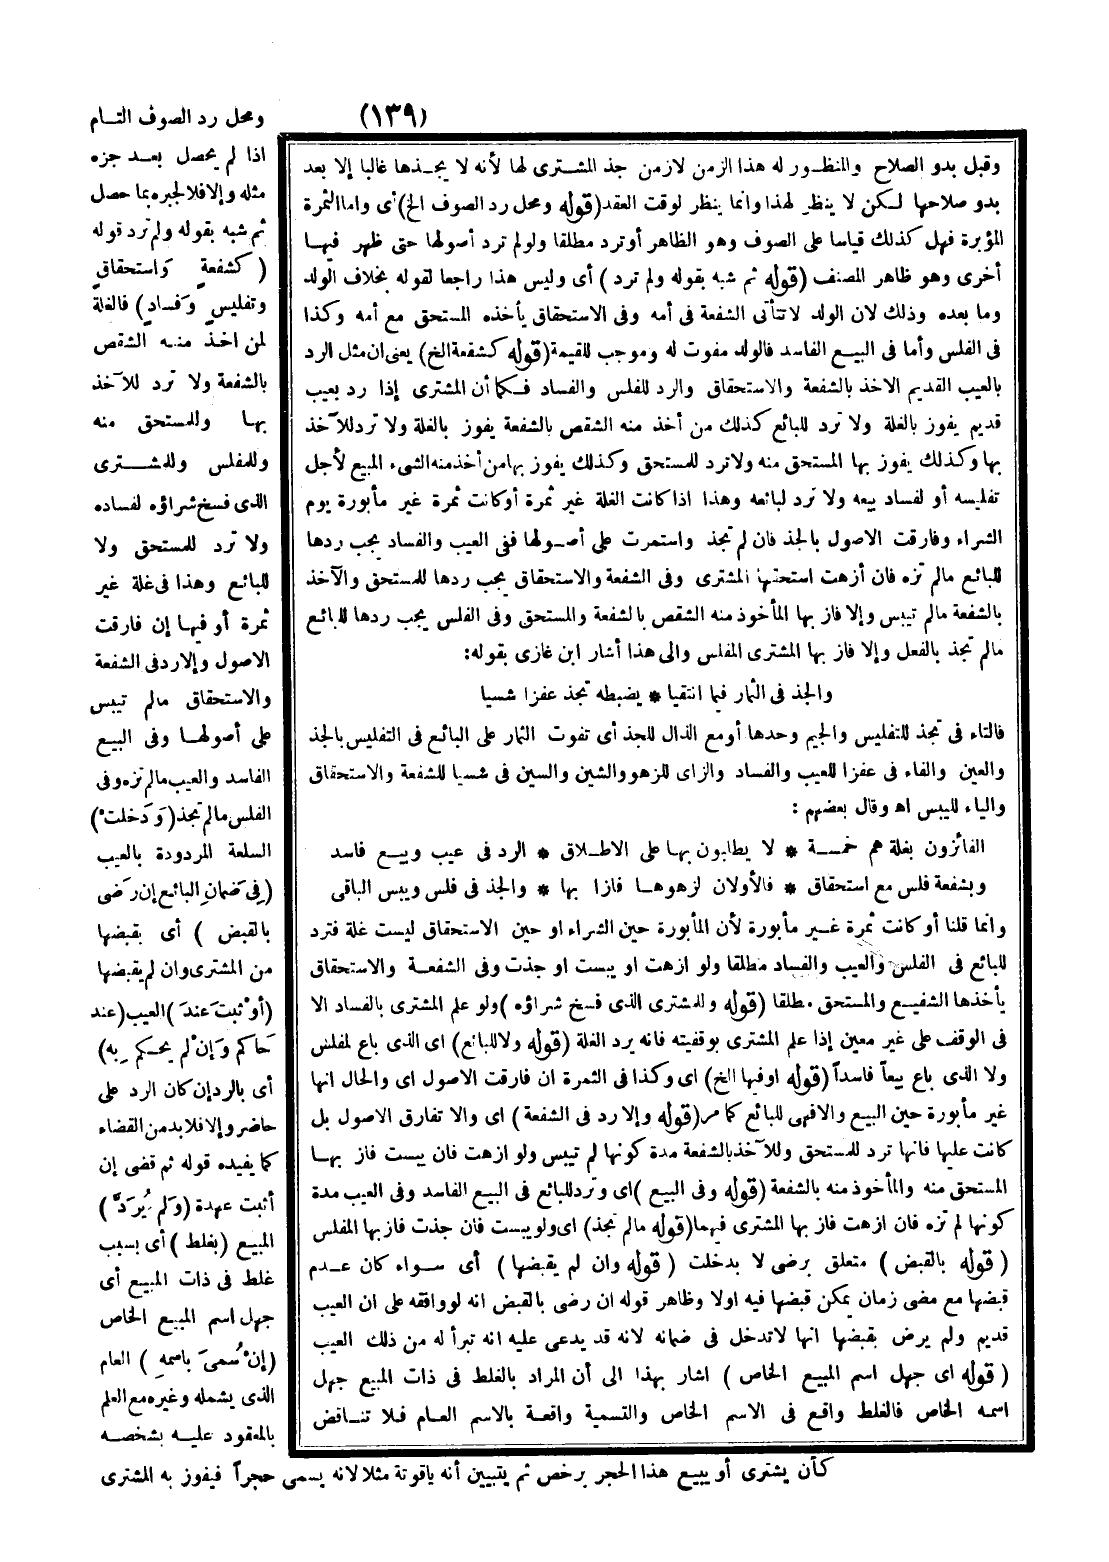 (١٣٩)
وقبل بدو الصلاح والمنظور له هذا الزمن لازمن جذ المشترى لها لأنه لا يجذها غالبا إلا بعد
بدو صلاحها لكن لا ينظر لهذا وانما ينظر لوقت العقد (قوله ومحل رد الصوف الخ) أى واما الثمرة
المؤبرة فهل كذلك قياسا على الصوف وهو الظاهر أوترد مطلقا ولولم ترد أصولها حتى ظهر فيها
أخرى وهو ظاهر المصنف (قوله ثم شبه بقوله ولم ترد) أى وليس هذا راجعا لقوله بخلاف الولد
وما بعده وذلك لان الولد لا تتأتى الشفعة فى أمه وفى الاستحقاق يأخذه المستحق مع أمه وكذا
فى الفلس وأما فى البيع الفاسد فالولد مفوت له وموجب للقيمة (قوله كشفعة الخ) يعنى ان مثل الرد
بالعيب القديم الاخذ بالشفعة والاستحقاق والرد للفلس والفساد فكما أن المشترى إذا رد بعيب
قديم يفوز بالغلة ولا ترد للبائع كذلك من أخذ منه الشقص بالشفعة يفوز بالغلة ولا ترد للآخذ
بها وكذلك يفوز بها المستحق منه ولا ترد للمستحق وكذلك يفوز بها من أخذ منه الشىء المبيع لأجل
تفليسه أو لفساد بيعه ولا ترد لبائعه وهذا اذا كانت الغلة غير ثمرة أوكانت ثمرة غير مأبورة يوم
الشراء وفارقت الاصول بالجذ فان لم تجذ واستمرت على أصولها ففى العيب والفساد يجب ردها
للبائع مالم تزه فان أزهت استحقها المشترى وفى الشفعة والاستحقاق يجب ردها للمستحق والآخذ
بالشفعة مالم تيبس وإلا فاز بها المأخوذ منه الشقص بالشفعة والمستحق وفى الفلس يجب ردها للبائع
مالم تجذ بالفعل وإلا فاز بها المشترى المفلس والى هذا أشار ابن غازى بقوله:
والجذ فى الثمار فيما انتقيا * يضبطه تجذ عفزا شسيا
فالتاء فى تجذ للتفليس والجيم وحدها أومع الذال للجذ أى تفوت الثمار على البائع فى التفليس بالجذ
والعين والفاء فى عفزا للعيب والفساد والزاى للزهو والشين والسين فى شسيا للشفعة والاستحقاق
والياء لليبس اه وقال بعضهم :
الفائزون بغلة هم خمسة * لا يطابون بها على الاطلاق * الرد فى عيب وبيع فاسد
وبشفعة فلس مع استحقاق * فالأولان لزهوها فازا بها * والجذ فى فلس ويبس الباقى
وانما قلنا أو كانت ثمرة غير مأبورة لأن المأبورة حين الشراء او حين الاستحقاق ليست غلة فترد
للبائع فى الفلس والعيب والفساد مطلقا ولو ازهت او يبست او جذت وفى الشفعة والاستحقاق
يأخذها الشفيع والمستحق مطلقا (قوله وللمشترى الذى فسخ شراؤه) ولو علم المشترى بالفساد الا
فى الوقف على غير معين إذا علم المشترى بوقفيته فانه يرد الغلة (قوله ولا للبائع) اى الذى باع لمفلس
ولا الذى باع بيعاً فاسداً (قوله اوفيها الخ) اى وكذا فى الثمرة ان فارقت الاصول اى والحال انها
غير مأبورة حين البيع والا فهى للبائع كما مر (قوله وإلا رد فى الشفعة) اى والا تفارق الاصول بل
كانت عليها فانها ترد للمستحق وللآخذ بالشفعة مدة كونها لم تيبس ولو ازهت فان يبست فاز بها
المستحق منه والمأخوذ منه بالشفعة (قوله وفى البيع) اى وترد للبائع فى البيع الفاسد وفى العيب مدة
كونها لم تزه فان ازهت فاز بها المشترى فيهما (قوله مالم تجذ) اى ولو يبست فان جذت فاز بها المفلس
(قوله بالقبض) متعلق برضى لا بدخلت (قوله وان لم يقبضها) أى سواء كان عدم
قبضها مع مضى زمان يمكن قبضها فيه اولا وظاهر قوله ان رضى بالقبض انه لو وافقه على ان العيب
قديم ولم يرض بقبضها انها لا تدخل فى ضمانه لانه قد يدعى عليه انه تبرأ له من ذلك العيب
(قوله اى جهل اسم المبيع الخاص) اشار بهذا الى أن المراد بالغلط فى ذات المبيع جهل
اسمه الخاص فالغلط واقع فى الاسم الخاص والتسمية واقعة بالاسم العام فلا تناقض
ومحل رد الصوف التام
اذا لم يحصل بعد جزه
مثله وإلا فلا لجبره بما حصل
ثم شبه بقوله ولم ترد قوله
(كشفعةٍ وَاستحقاقٍ
وتفليسٍ وَفسادٍ) فالغلة
لمن اخذ منه الشقص
بالشفعة ولا ترد للآخذ
بها وللمستحق منه
وللمفلس وللمشترى
الذى فسخ شراؤه لفساده
ولا ترد للمستحق ولا
للبائع وهذا فى غلة غير
ثمرة أو فيها إن فارقت
الاصول وإلا رد فى الشفعة
والاستحقاق مالم تيبس
على أصولها وفى البيع
الفاسد والعيب مالم تزه وفى
الفلس مالم تجذ (وَدَخلتْ)
السلعة المردودة بالعيب
(فِى ضَمانِ البائعِ إن رَضى
بالقبض) أى بقبضها
من المشترى وان لم يقبضها
(أو ْثبتَ عندَ) العيب (عند
حَاكم وَإنْ لم يحكم بِه)
أى بالرد إن كان الرد على
حاضر وإلا فلا بد من القضاء
كما يفيده قوله ثم قضى إن
أثبت عهدة (وَلم يُرَدَّ)
المبيع (بغلط) أى بسبب
غلط فى ذات المبيع أى
جهل اسم المبيع الخاص
(إنْ سُمىَ باسمهِ) العام
الذى يشمله وغيره مع العلم
بالمعقود عليه بشخصه
كأن يشترى أو يبيع هذا الحجر برخص ثم يتبيين أنه ياقوتة مثلا لانه يسمى حجراً فيفوز به المشترى